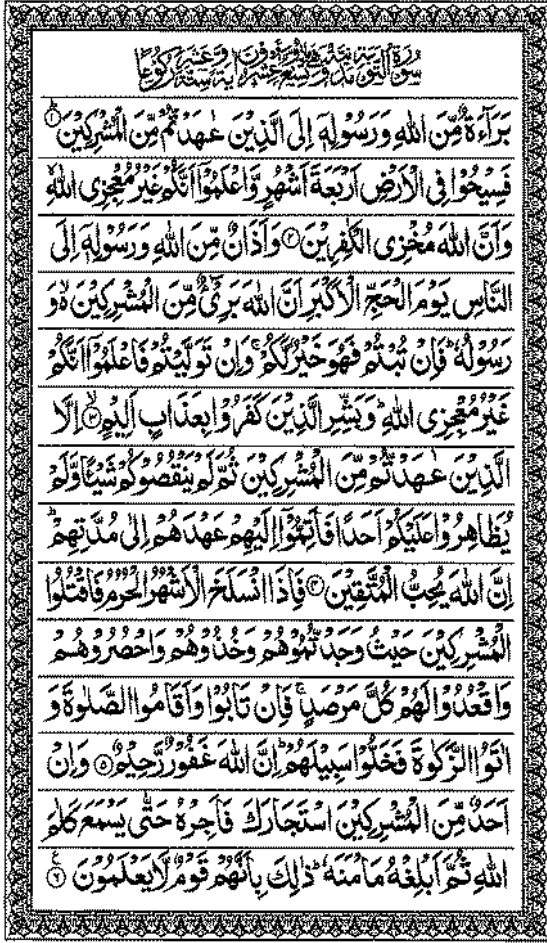 سُوْرَةُ التَّوْبَةِ مَدَنِيَّةٌ وَّهِيَ مِائَةٌ وَّتِسْعٌ وَّعِشْرُوْنَ اٰيَةً وَّسِتَّةَ عَشَرَ رُكُوْعًا
بَرَآءَةٌ مِّنَ اللّٰهِ وَرَسُوْلِهٖٓ اِلَى الَّذِيْنَ عٰهَدْتُّمْ مِّنَ الْمُشْرِكِيْنَ ؕ ۝۱
فَسِيْحُوْا فِى الْاَرْضِ اَرْبَعَةَ اَشْهُرٍ وَّاعْلَمُوْٓا اَنَّكُمْ غَيْرُ مُعْجِزِى اللّٰهِ ۙ
وَاَنَّ اللّٰهَ مُخْزِى الْكٰفِرِيْنَ ۝۲ وَاَذَانٌ مِّنَ اللّٰهِ وَرَسُوْلِهٖٓ اِلَى
النَّاسِ يَوْمَ الْحَجِّ الْاَكْبَرِ اَنَّ اللّٰهَ بَرِىْٓءٌ مِّنَ الْمُشْرِكِيْنَ ۙ۬ وَ
رَسُوْلُهٗ ؕ فَاِنْ تُبْتُمْ فَهُوَ خَيْرٌ لَّكُمْ ۚ وَاِنْ تَوَلَّيْتُمْ فَاعْلَمُوْٓا اَنَّكُمْ
غَيْرُ مُعْجِزِى اللّٰهِ ؕ وَبَشِّرِ الَّذِيْنَ كَفَرُوْا بِعَذَابٍ اَلِيْمٍ ۙ ۝۳ اِلَّا
الَّذِيْنَ عٰهَدْتُّمْ مِّنَ الْمُشْرِكِيْنَ ثُمَّ لَمْ يَنْقُصُوْكُمْ شَيْـًٔا وَّلَمْ
يُظَاهِرُوْا عَلَيْكُمْ اَحَدًا فَاَتِمُّوْٓا اِلَيْهِمْ عَهْدَهُمْ اِلٰى مُدَّتِهِمْ ؕ
اِنَّ اللّٰهَ يُحِبُّ الْمُتَّقِيْنَ ۝۴ فَاِذَا انْسَلَخَ الْاَشْهُرُ الْحُرُمُ فَاقْتُلُوا
الْمُشْرِكِيْنَ حَيْثُ وَجَدْتُّمُوْهُمْ وَخُذُوْهُمْ وَاحْصُرُوْهُمْ
وَاقْعُدُوْا لَهُمْ كُلَّ مَرْصَدٍ ۚ فَاِنْ تَابُوْا وَاَقَامُوا الصَّلٰوةَ وَ
اٰتَوُا الزَّكٰوةَ فَخَلُّوْا سَبِيْلَهُمْ ؕ اِنَّ اللّٰهَ غَفُوْرٌ رَّحِيْمٌ ۝۵ وَاِنْ
اَحَدٌ مِّنَ الْمُشْرِكِيْنَ اسْتَجَارَكَ فَاَجِرْهُ حَتّٰى يَسْمَعَ كَلٰمَ
اللّٰهِ ثُمَّ اَبْلِغْهُ مَاْمَنَهٗ ؕ ذٰلِكَ بِاَنَّهُمْ قَوْمٌ لَّا يَعْلَمُوْنَ ۝۶ ع